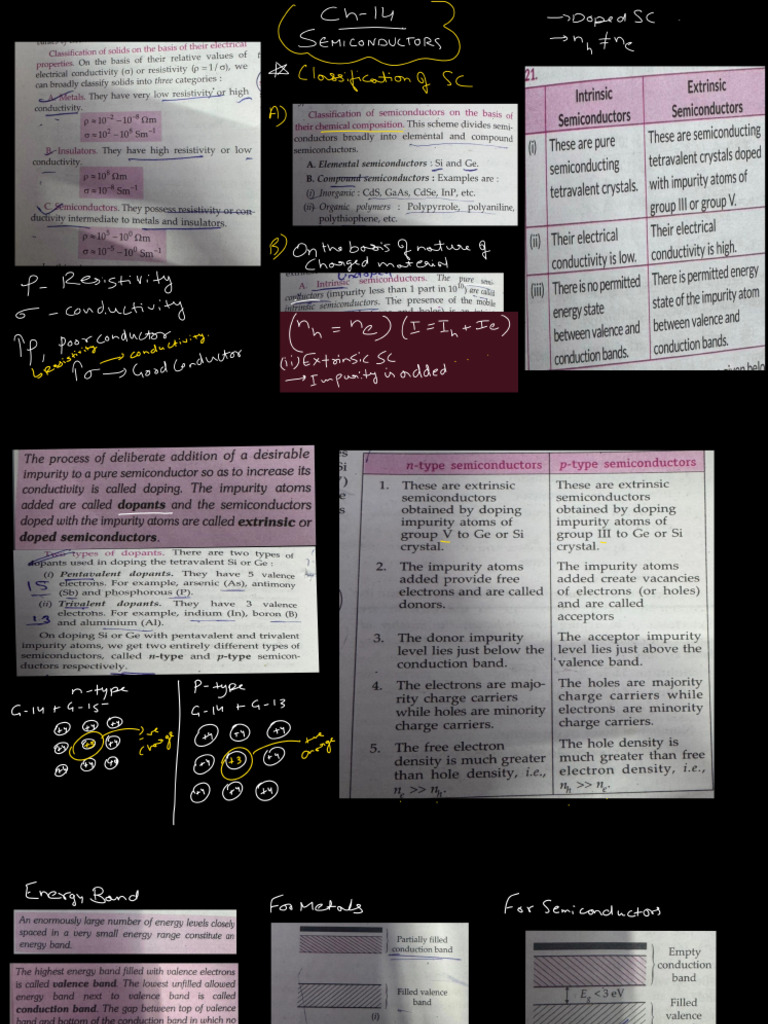 Ch-14
SEMICONDUCTORS
Classification of solids on the basis of their electrical
properties. On the basis of their relative values of
electrical conductivity (σ) or resistivity (ρ = 1/σ), we
can broadly classify solids into three categories :
A. Metals. They have very low resistivity or high
conductivity.
ρ ≈ 10⁻² – 10⁻⁸ Ωm
σ ≈ 10² – 10⁸ Sm⁻¹
B. Insulators. They have high resistivity or low
conductivity.
ρ ≈ 10⁸ Ωm
σ ≈ 10⁻⁸ Sm⁻¹
C. Semiconductors. They possess resistivity or con-
ductivity intermediate to metals and insulators.
ρ ≈ 10⁵ – 10⁰ Ωm
σ ≈ 10⁻⁵ – 10⁰ Sm⁻¹
ρ - Resistivity
σ - conductivity
↑ρ, poor conductor
Resistivity → conductivity.
↑σ → Good Conductor
Classification of SC
A)
Classification of semiconductors on the basis of
their chemical composition. This scheme divides semi-
conductors broadly into elemental and compound
semiconductors.
A. Elemental semiconductors : Si and Ge.
B. Compound semiconductors : Examples are :
(i) Inorganic : CdS, GaAs, CdSe, InP, etc.
(ii) Organic polymers : Polypyrrole, polyaniline,
polythiophene, etc.
B) On the basis of nature of
Charged material
A. Intrinsic semiconductors. The pure semi-
conductors (impurity less than 1 part in 10¹⁰) are called
intrinsic semiconductors. The presence of the mobile
(nh = ne) (I = Ih + Ie)
(ii) Extrinsic SC
→ Impurity is added
→ Doped SC
→ nh ≠ ne
21.
Intrinsic Semiconductors
Extrinsic Semiconductors
(i) These are pure semiconducting tetravalent crystals.
These are semiconducting tetravalent crystals doped with impurity atoms of group III or group V.
(ii) Their electrical conductivity is low.
Their electrical conductivity is high.
(iii) There is no permitted energy state between valence and conduction bands.
There is permitted energy state of the impurity atom between valence and conduction bands.
The process of deliberate addition of a desirable
impurity to a pure semiconductor so as to increase its
conductivity is called doping. The impurity atoms
added are called dopants and the semiconductors
doped with the impurity atoms are called extrinsic or
doped semiconductors.
Two types of dopants. There are two types of
dopants used in doping the tetravalent Si or Ge :
(i) Pentavalent dopants. They have 5 valence
15 electrons. For example, arsenic (As), antimony
(Sb) and phosphorous (P).
(ii) Trivalent dopants. They have 3 valence
13 electrons. For example, indium (In), boron (B)
and aluminium (Al).
On doping Si or Ge with pentavalent and trivalent
impurity atoms, we get two entirely different types of
semiconductors, called n-type and p-type semicon-
ductors respectively.
n-type
G-14 + G-15
+4 +4 +4
+4 +5 +4
+4 +4 +4
-ve charge
P-type
G-14 + G-13
+4 +4 +4
+4 +3 +4
+4 +4 +4
+ve charge
n-type semiconductors
p-type semiconductors
1. These are extrinsic semiconductors obtained by doping impurity atoms of group V to Ge or Si crystal.
These are extrinsic semiconductors obtained by doping impurity atoms of group III to Ge or Si crystal.
2. The impurity atoms added provide free electrons and are called donors.
The impurity atoms added create vacancies of electrons (or holes) and are called acceptors
3. The donor impurity level lies just below the conduction band.
The acceptor impurity level lies just above the valence band.
4. The electrons are majo- rity charge carriers while holes are minority charge carriers.
The holes are majority charge carriers while electrons are minority charge carriers.
5. The free electron density is much greater than hole density, i.e., ne >> nh.
The hole density is much greater than free electron density, i.e., nh >> ne.
Energy Band
An enormously large number of energy levels closely
spaced in a very small energy range constitute an
energy band.
The highest energy band filled with valence electrons
is called valence band. The lowest unfilled allowed
energy band next to valence band is called
conduction band. The gap between top of valence
band and bottom of the conduction band in which no
For Metals
Partially filled
conduction band
Filled valence
band
(i)
For Semiconductors
Empty
conduction
band
Eg < 3 eV
Filled
valence